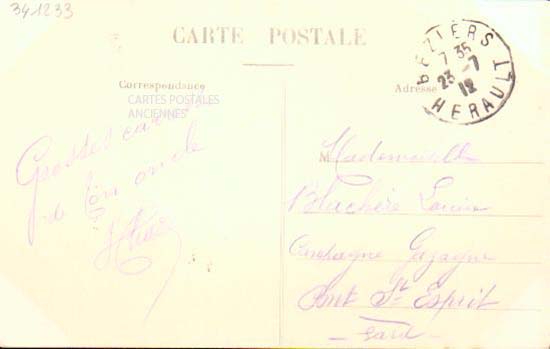 341233
CARTE POSTALE
BEZIERS
7 35
23-7
12
HERAULT
Correspondance
Adresse
CARTES POSTALES
ANCIENNES
Grosses
de ton oncle
M Mademoiselle
Blachère Louise
Campagne
Pont St Esprit
Gard